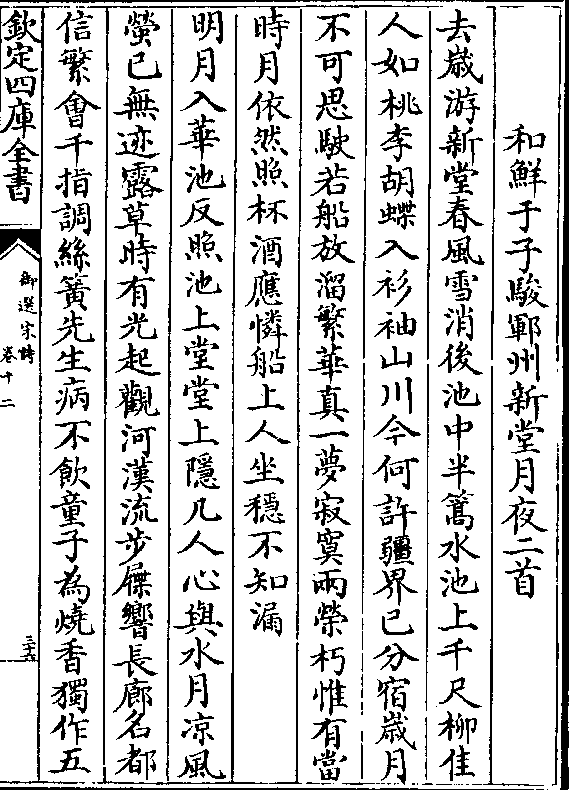 和鮮于子駿鄆州新堂月夜二首
去歲游新堂春風雪消後池中半篙水池上千尺柳佳
人如桃李胡蝶入衫袖山川今何許疆界已分宿歲月
不可思駛若船放溜繁華真一夢寂寞兩榮朽惟有當
時月依然照杯酒應憐船上人坐穩不知漏
明月入華池反照池上堂堂上隱几人心與水月凉風
螢已無迹露草時有光起觀河漢流步屧響長廊名都
信繁會千指調絲簧先生病不飲童子為燒香獨作五
欽定四庫全書
御選宋詩
卷十二
三六